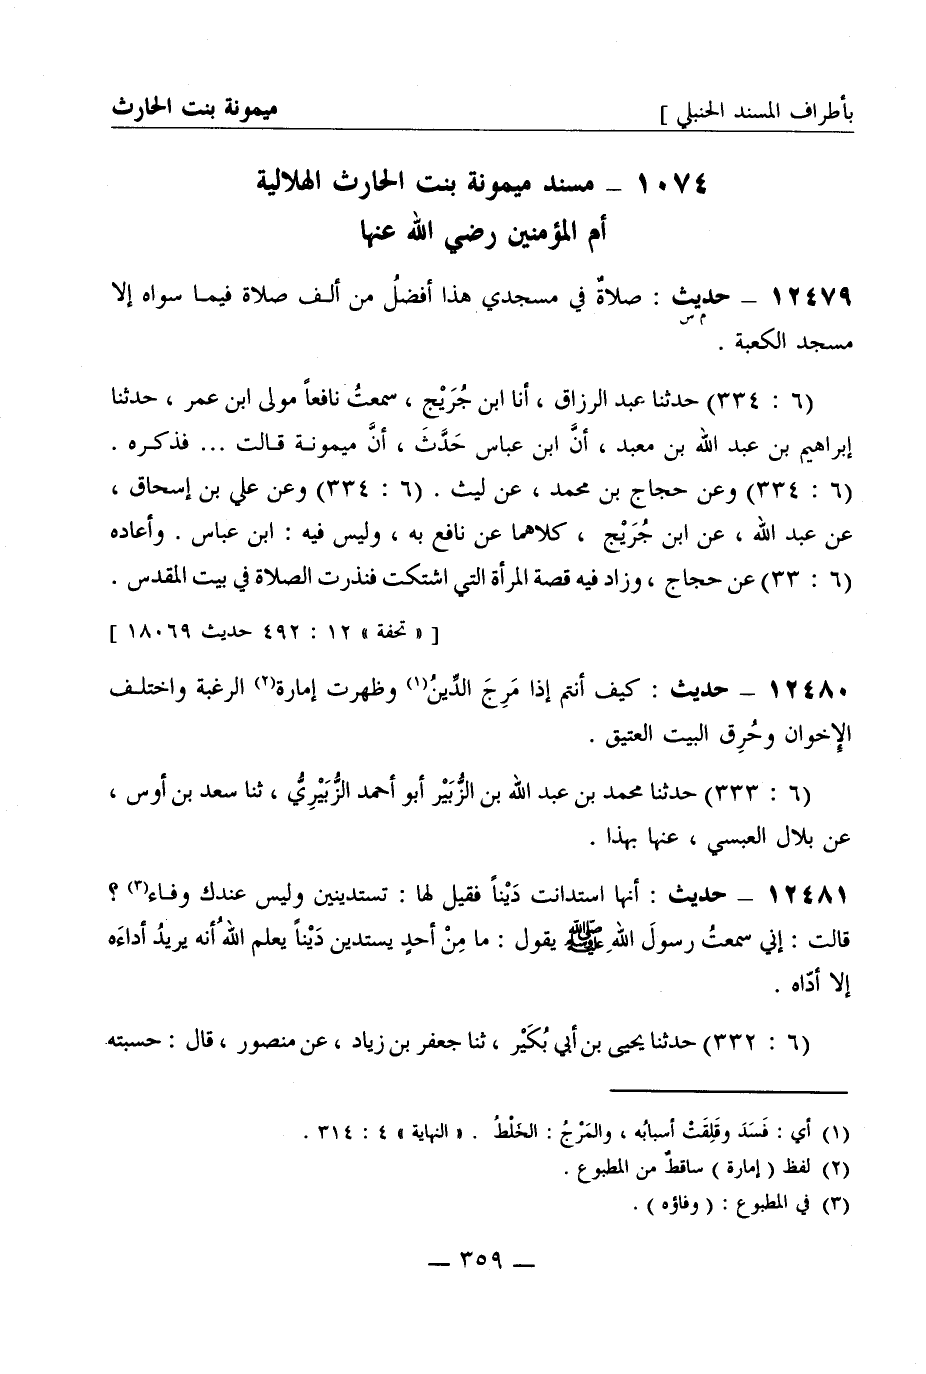 بأطراف المسند الحنبلي ] ميمونة بنت الحارث
١٠٧٤ ـ مسند ميمونة بنت الحارث الهلالية
أم المؤمنين رضي الله عنها
١٢٤٧٩ ـ حديث : صلاةٌ في مسجدي هذا أفضلُ من ألف صلاة فيما سواه إلا
م س
مسجد الكعبة .
(٦ : ٣٣٤) حدثنا عبد الرزاق ، أنا ابن جُرَيْج ، سمعتُ نافعاً مولى ابن عمر ، حدثنا
إبراهيم بن عبد الله بن معبد ، أنَّ ابن عباس حَدَّثَ ، أنَّ ميمونة قالت ... فذكره .
(٦ : ٣٣٤) وعن حجاج بن محمد ، عن ليث . (٦ : ٣٣٤) وعن علي بن إسحاق ،
عن عبد الله ، عن ابن جُرَيْج ، كلاهما عن نافع به ، وليس فيه : ابن عباس . وأعاده
(٦ : ٣٣) عن حجاج ، وزاد فيه قصة المرأة التي اشتكت فنذرت الصلاة في بيت المقدس .
[ « تحفة » ١٢ : ٤٩٢ حديث ١٨٠٦٩ ]
١٢٤٨٠ ـ حديث : كيف أنتم إذا مَرِجَ الدِّينُ(١) وظهرت إمارة(٢) الرغبة واختلف
الإخوان وحُرِق البيت العتيق .
(٦ : ٣٣٣) حدثنا محمد بن عبد الله بن الزُّبَيْر أبو أحمد الزُّبَيْرِيُّ ، ثنا سعد بن أوس ،
عن بلال العبسي ، عنها بهذا .
١٢٤٨١ ـ حديث : أنها استدانت دَيْناً فقيل لها : تستدينين وليس عندك وفاء(٣) ؟
قالت : إني سمعتُ رسولَ اللهِ ﷺ يقول : ما مِنْ أحدٍ يستدين دَيْناً يعلم اللهُ أنه يريدُ أداءَه
إلا أدّاه .
(٦ : ٣٣٢) حدثنا يحيى بن أبي بُكَيْر ، ثنا جعفر بن زياد ، عن منصور ، قال : حسبته
(١) أي : فَسَدَ وقَلِقَتْ أسبابُه ، والمَرْجُ : الخَلْطُ . « النهاية » ٤ : ٣١٤ .
(٢) لفظ ( إمارة ) ساقطٌ من المطبوع .
(٣) في المطبوع : ( وفاؤه ) .
ـ ٣٥٩ ـ